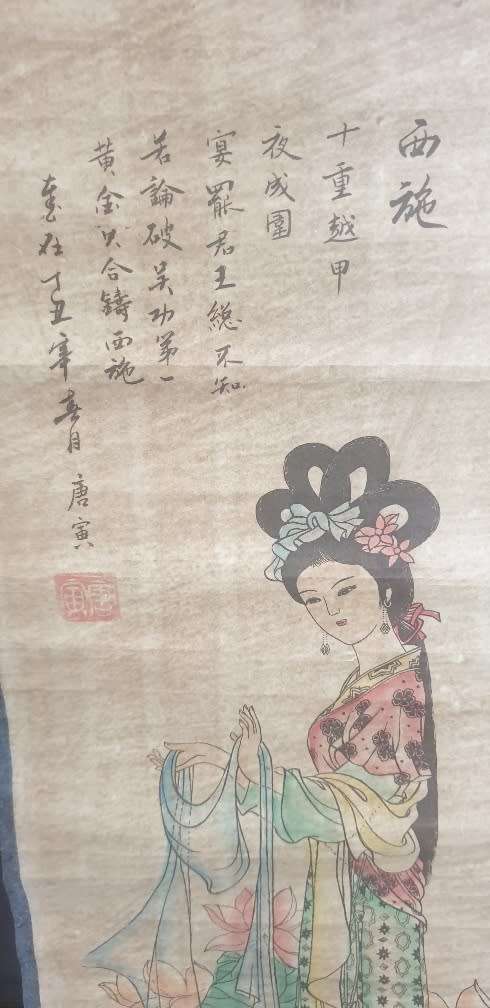 西施
十重越甲
夜成圍
宴罷君王總不知
若論破吳功第一
黃金只合鑄西施
歲在丁丑年春月 唐寅
唐寅